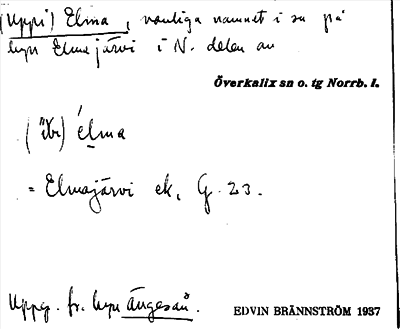 (Uppi) Elma, vanliga namnet i sn på
byn Elmajärvi i N. delen av
Överkalix sn o. tg Norrb. l.
élma
= Elmajärvi ek. G. 23.
Uppg. fr. byn Ängesån.
EDVIN BRÄNNSTRÖM 1937